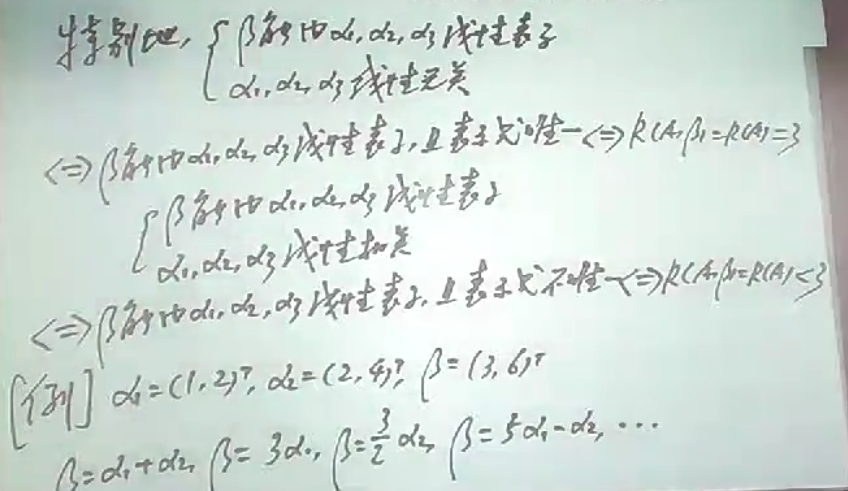 特别地, { β能由α₁, α₂, α₃线性表示
α₁, α₂, α₃线性无关
<=> β能由α₁, α₂, α₃线性表示, 且表示式唯一 <=> R(A, β)=R(A)=3
{ β能由α₁, α₂, α₃线性表示
α₁, α₂, α₃线性相关
<=> β能由α₁, α₂, α₃线性表示, 且表示式不唯一 <=> R(A, β)=R(A)<3
[例] α₁=(1,2)ᵀ, α₂=(2,4)ᵀ, β=(3,6)ᵀ
β=α₁+α₂, β=3α₁, β=3/2 α₂, β=5α₁-α₂, ...